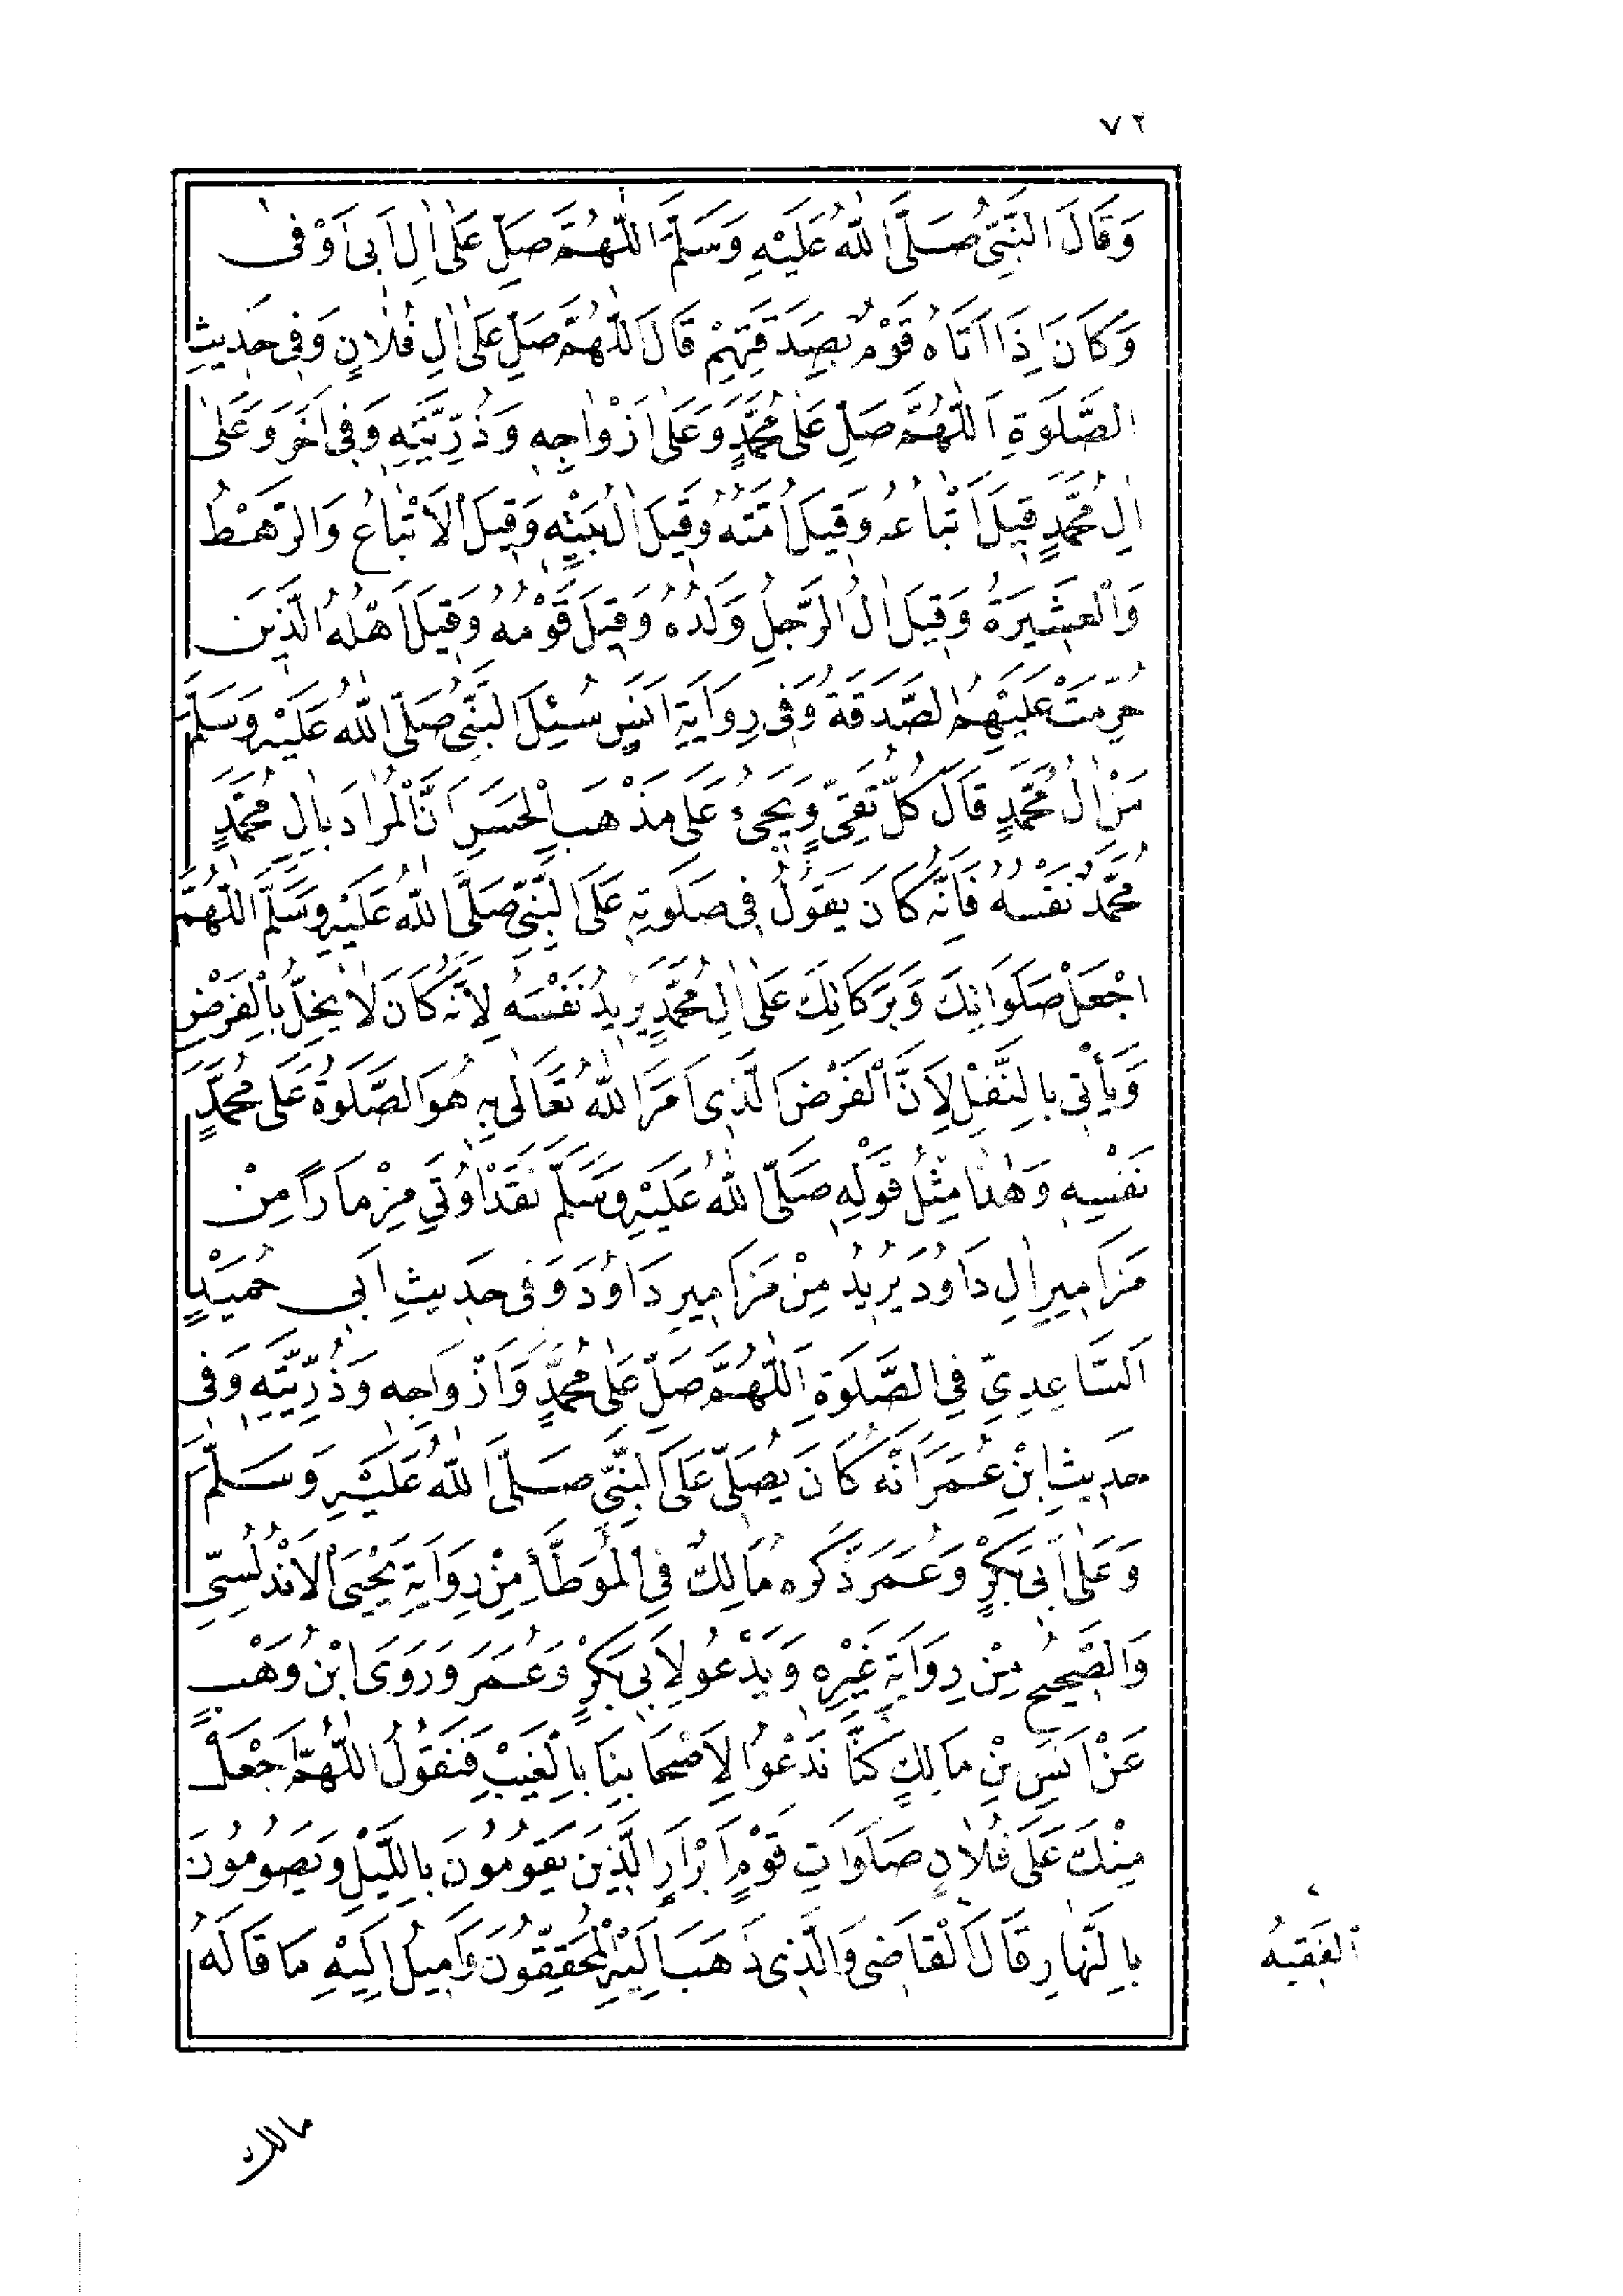 ٧٢
وَقَالَ النَّبِىُّ صَلَّى اللّٰهُ عَلَيْهِ وَسَلَّمَ اَللّٰهُمَّ صَلِّ عَلٰى اٰلِ اَبِى اَوْفٰى
وَكَانَ اِذَا اَتَاهُ قَوْمٌ بِصَدَقَتِهِمْ قَالَ اللّٰهُمَّ صَلِّ عَلٰى اٰلِ فُلَانٍ وَفِى حَدِيثِ
الصَّلٰوةِ اَللّٰهُمَّ صَلِّ عَلٰى مُحَمَّدٍ وَعَلٰى اَزْوَاجِهِ وَذُرِّيَّتِهِ وَفِى اٰخَرَ وَعَلٰى
اٰلِ مُحَمَّدٍ قِيلَ اَتْبَاعُهُ وَقِيلَ اُمَّتُهُ وَقِيلَ اٰلُ بَيْتِهِ وَقِيلَ الْاَتْبَاعُ وَالرَّهْطُ
وَالْعَشِيرَةُ وَقِيلَ اٰلُ الرَّجُلِ وَلَدُهُ وَقِيلَ قَوْمُهُ وَقِيلَ اَهْلُهُ الَّذِينَ
حُرِّمَتْ عَلَيْهِمُ الصَّدَقَةُ وَفِى رِوَايَةِ اَنَسٍ سُئِلَ النَّبِىُّ صَلَّى اللّٰهُ عَلَيْهِ وَسَلَّمَ
مَنْ اٰلُ مُحَمَّدٍ قَالَ كُلُّ تَقِىٍّ وَيَجِىءُ عَلٰى مَذْهَبِ الْحَسَنِ اَنَّ الْمُرَادَ بِاٰلِ مُحَمَّدٍ
مُحَمَّدٌ نَفْسُهُ فَاِنَّهُ كَانَ يَقُولُ فِى صَلٰوتِهِ عَلَى النَّبِىِّ صَلَّى اللّٰهُ عَلَيْهِ وَسَلَّمَ اللّٰهُمَّ
اجْعَلْ صَلَوَاتِكَ وَبَرَكَاتِكَ عَلٰى اٰلِ مُحَمَّدٍ يُرِيدُ نَفْسَهُ لِاَنَّهُ كَانَ لَا يُخِلُّ بِالْفَرْضِ
وَيَأْتِى بِالنَّفْلِ لِاَنَّ الْفَرْضَ الَّذِى اَمَرَ اللّٰهُ تَعَالٰى بِهِ هُوَ الصَّلٰوةُ عَلٰى مُحَمَّدٍ
نَفْسِهِ وَهٰذَا مِثْلُ قَوْلِهِ صَلَّى اللّٰهُ عَلَيْهِ وَسَلَّمَ لَقَدْ اُوتِىَ مِزْمَارًا مِنْ
مَزَامِيرِ اٰلِ دَاوُدَ يُرِيدُ مِنْ مَزَامِيرِ دَاوُدَ وَفِى حَدِيثِ اَبِى حُمَيْدٍ
اَلسَّاعِدِىِّ فِى الصَّلٰوةِ اَللّٰهُمَّ صَلِّ عَلٰى مُحَمَّدٍ وَاَزْوَاجِهِ وَذُرِّيَّتِهِ وَفِى
حَدِيثِ ابْنِ عُمَرَ اَنَّهُ كَانَ يُصَلِّى عَلَى النَّبِىِّ صَلَّى اللّٰهُ عَلَيْهِ وَسَلَّمَ
وَعَلٰى اَبِى بَكْرٍ وَعُمَرَ ذَكَرَهُ مَالِكٌ فِى الْمُوَطَّأِ مِنْ رِوَايَةِ يَحْيَى الْاَنْدَلُسِىِّ
وَالصَّحِيحُ مِنْ رِوَايَةِ غَيْرِهِ وَيَدْعُو لِاَبِى بَكْرٍ وَعُمَرَ وَرَوَى ابْنُ وَهْبٍ
عَنْ اَنَسِ بْنِ مَالِكٍ كُنَّا نَدْعُوا لِاَصْحَابِنَا بِالْغَيْبِ فَنَقُولُ اللّٰهُمَّ اجْعَلْ
مِنْكَ عَلٰى فُلَانٍ صَلَوَاتِ قَوْمٍ اَبْرَارٍ الَّذِينَ يَقُومُونَ بِاللَّيْلِ وَيَصُومُونَ
بِالنَّهَارِ قَالَ الْقَاضِى وَالَّذِى ذَهَبَ اِلَيْهِ الْمُحَقِّقُونَ وَاَمِيلُ اِلَيْهِ مَا قَالَهُ
اَلْفَقِيهُ
مالك